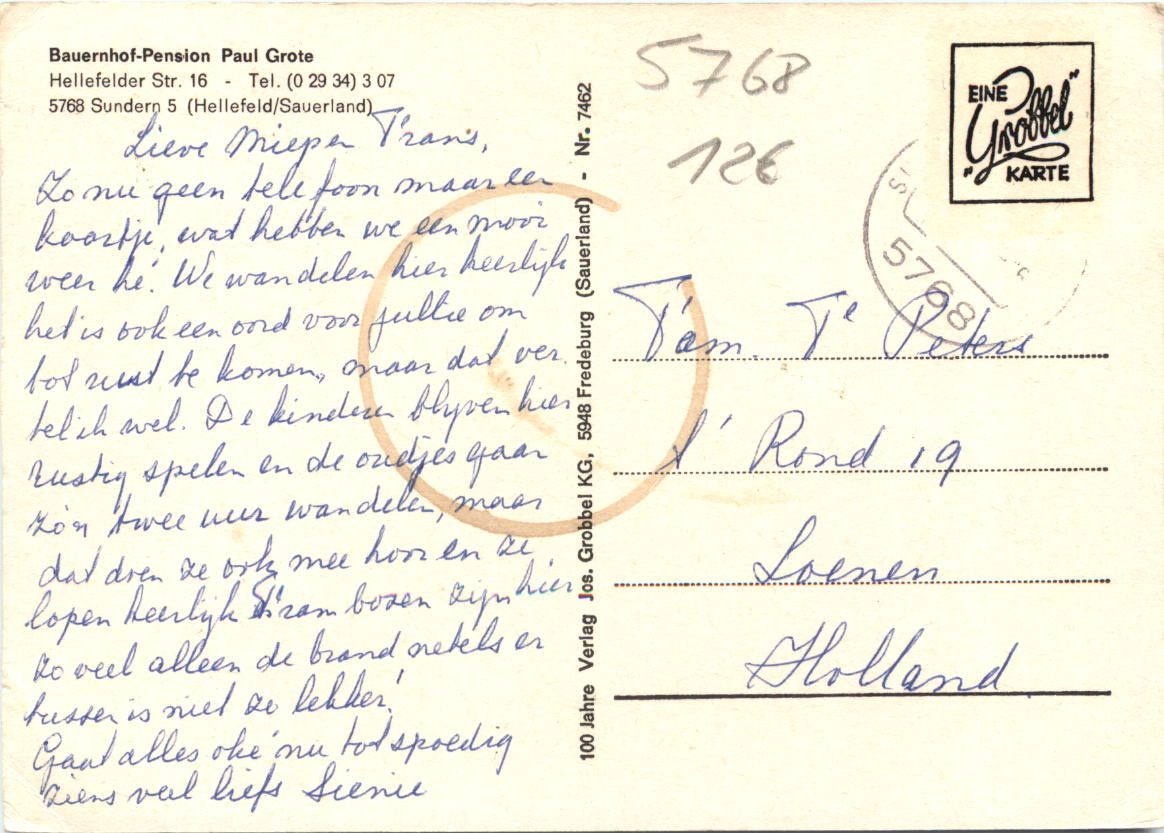 Bauernhof-Pension Paul Grote
Hellefelder Str. 16 - Tel. (0 29 34) 3 07
5768 Sundern 5 (Hellefeld/Sauerland)
Lieve Miep en Frans,
Zo nu geen telefoon maar een
kaartje, wat hebben we een mooi
weer hé! We wandelen hier heerlijk
het is ook een oord voor jullie om
tot rust te komen, maar dat ver
tel ik wel. De kinderen blijven hier
rustig spelen en de oudjes gaan
zo'n twee uur wandelen, maar
dat doen ze ook mee hoor en ze
lopen heerlijk Frambozen zijn hier
zo veel alleen de brandnetels er
tussen is niet zo lekker!
Gaat alles oké nu tot spoedig
ziens veel liefs Sienie
100 Jahre Verlag Jos. Grobbel KG, 5948 Fredeburg (Sauerland) - Nr. 7462
5768
126
EINE
"Grobbel"
KARTE
5768
Fam. Te Peters
't Rond 19
Loenen
Holland